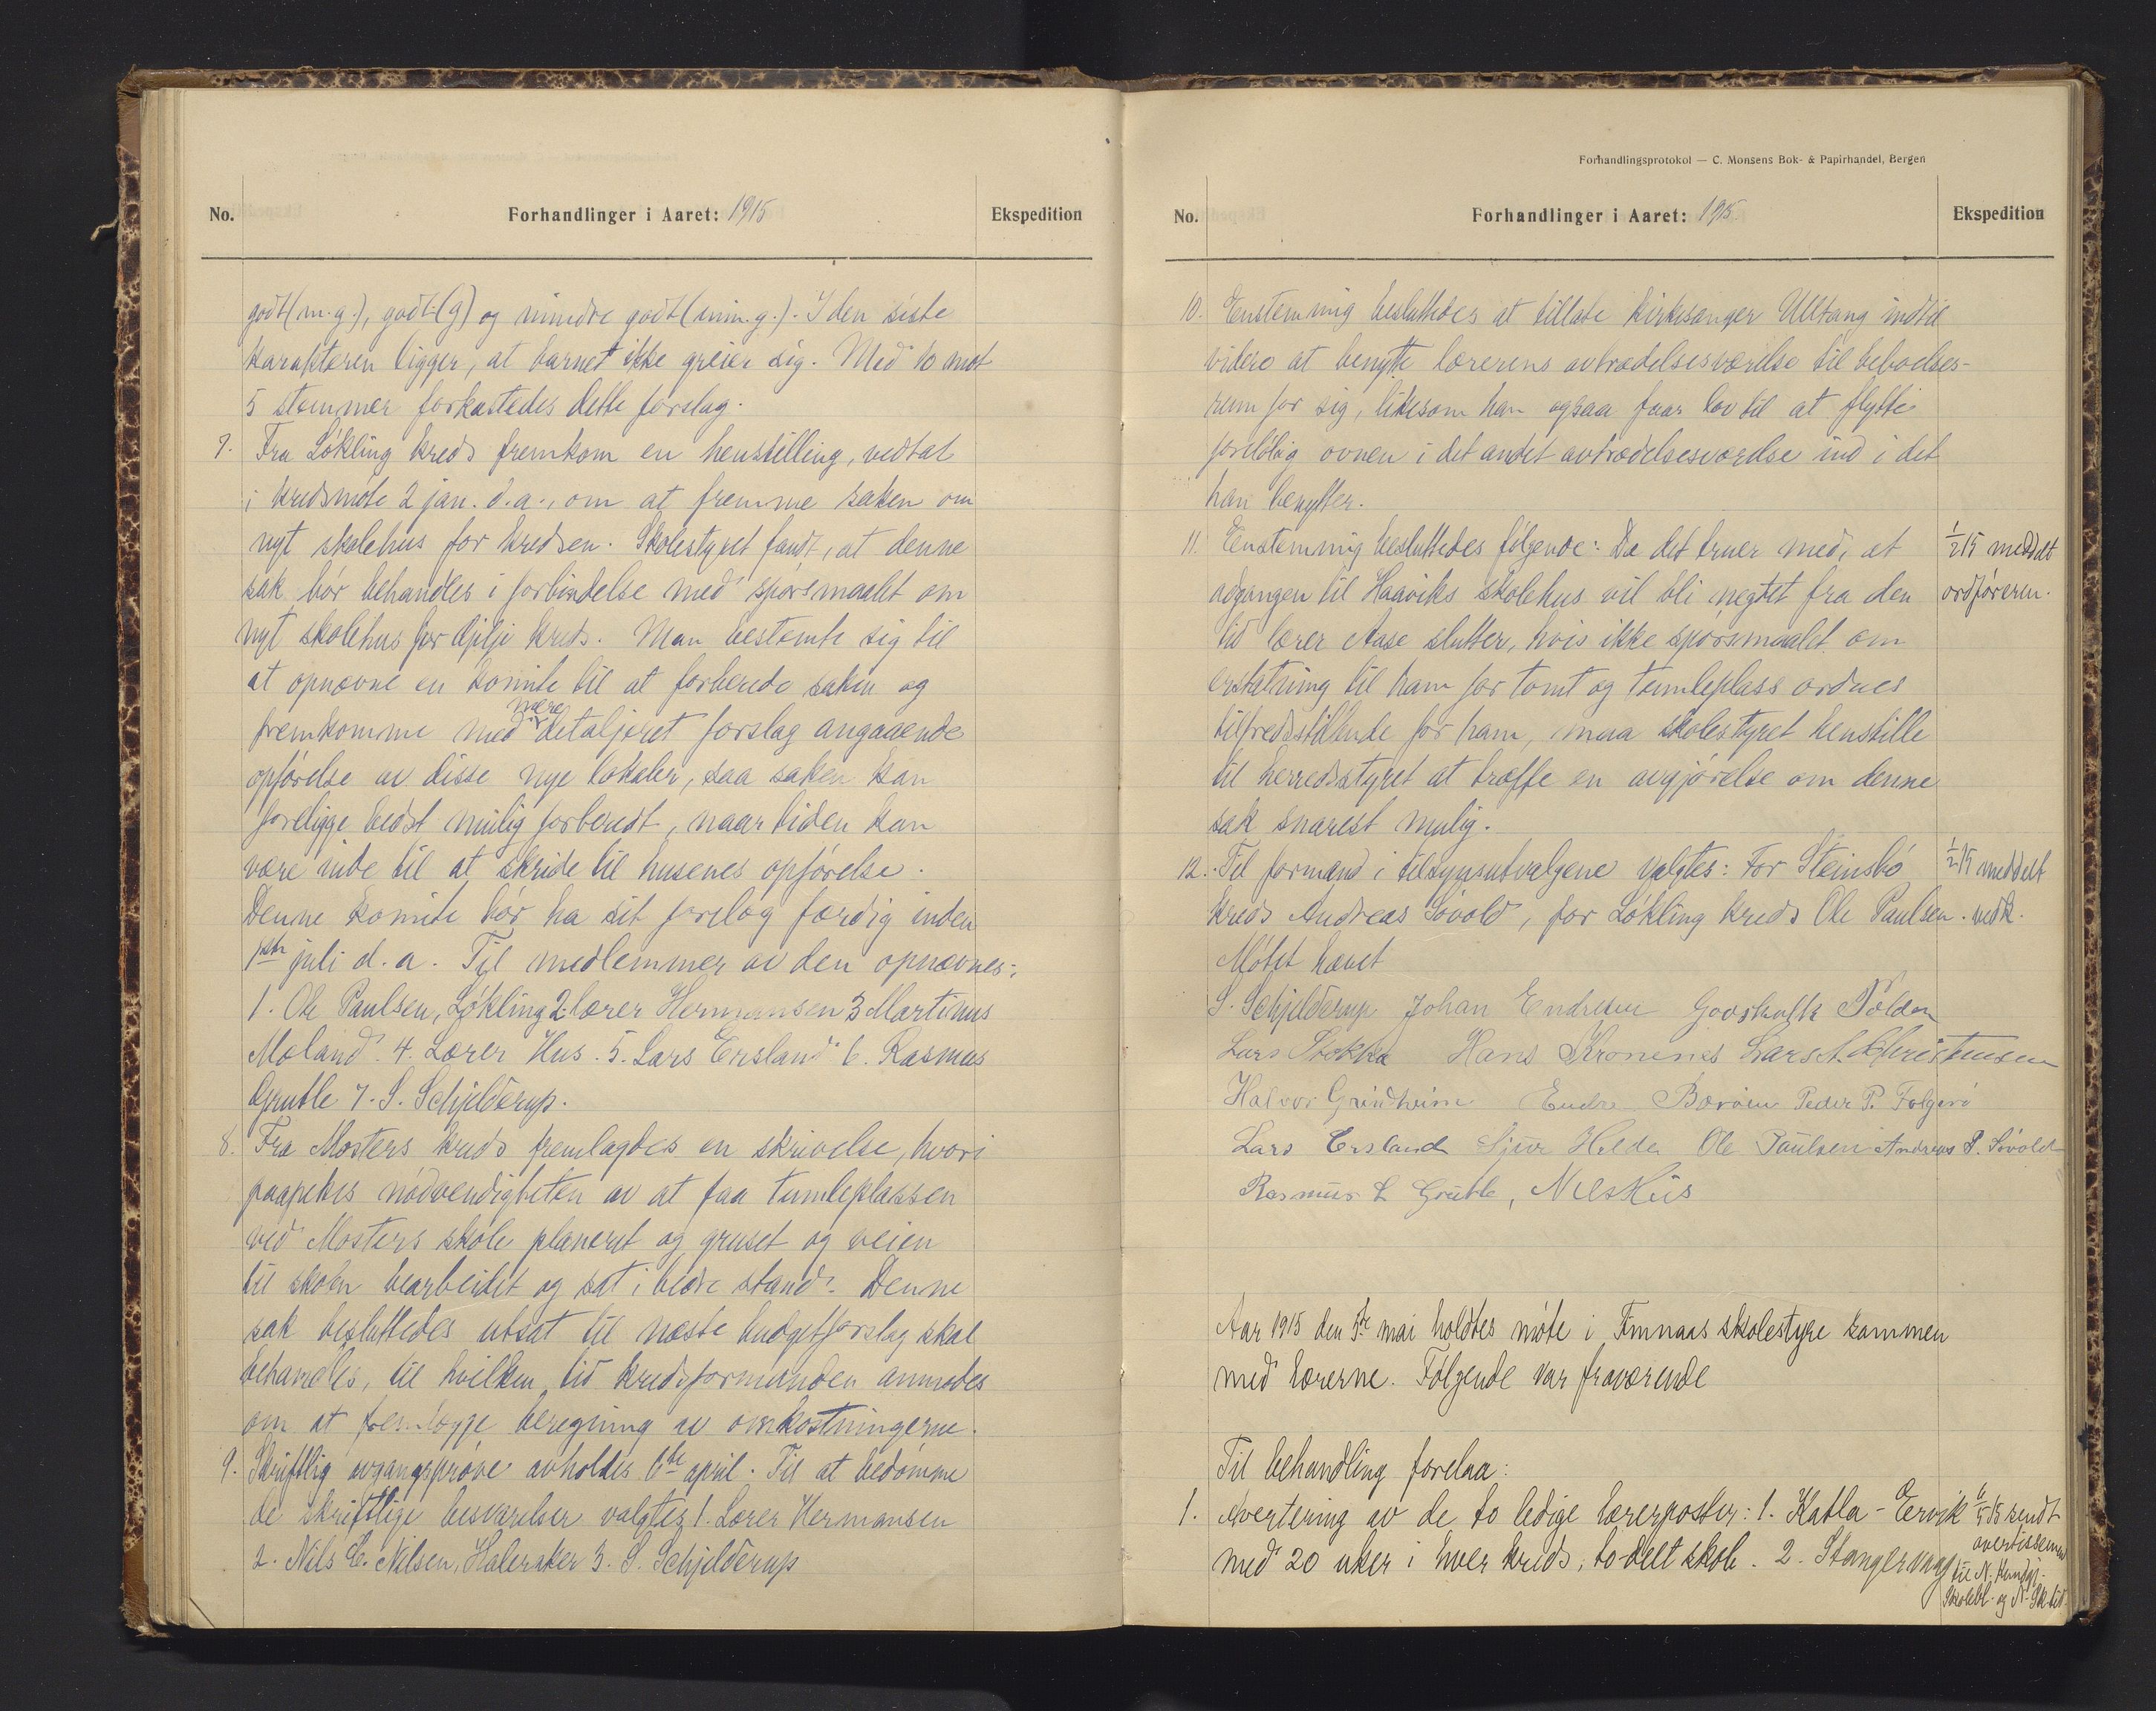 No.
Forhandlinger i Aaret: 1915
Ekspedition
godt (m.g.), godt (g) og mindre godt (min.g.). I den siste
karakteren ligger, at barnet ikke greier sig. Med 10 mot
5 stemmer forkastedes dette forslag.
7. Fra Løkling kreds fremkom en henstilling, vedtat
i kredsmøte 2 jan. d.a., om at fremme saken om
nyt skolehus for kredsen. Skolestyret fandt, at denne
sak bør behandles i forbindelse med spørsmaalet om
nyt skolehus for kreds. Man bestemte sig til
at opnævne en komite til at forberede saken og
fremkomme med mere detaljeret forslag angaaende
opførelse av disse nye lokaler, saa saken kan
foreligge bedst mulig forberedt, naar tiden kan
være inde til at skride til husenes opførelse.
Denne komite bør ha sit forslag færdig inden
1ste juli d.a. Til medlemmer av den opnævnes:
1. Ole Paulsen, Løkling 2. lærer Hermansen 3 Martinus
Moland. 4. Lærer Hus. 5. Lars Ersland 6. Rasmus
Grutle 7. S. Schjelderup.
8. Fra Mosters kreds fremlagdes en skrivelse, hvori
paapekes nødvendigheten av at faa tumleplassen
ved Mosters skole planeret og gruset og veien
til skolen bearbeidet og sat i bedre stand. Denne
sak besluttedes utsat til næste budgetforslag skal
behandles, til hvilken tid kredsformanden anmodes
om at fremlægge beregning av omkostningerne.
9. Skriftlig avgangsprøve avholdes 6te april. Til at bedømme
de skriftlige besvarelser valgtes 1. Lærer Hermansen
2. Nils C. Nilsen, Haleraker 3. S. Schjelderup
Forhandlingsprotokol — C. Monsens Bok- & Papirhandel, Bergen
No.
Forhandlinger i Aaret: 1915
Ekspedition
10. Enstemmig besluttedes at tillate kirkesanger Ulltang indtil
videre at benytte lærerens avtrædelsesværelse til beboelses-
rum for sig, likesom han ogsaa faar lov til at flytte
foreløbig ovnen i det andet avtrædelsesværelse ind i det
han benytter.
11. Enstemmig besluttedes følgende: Da det truer med, at
1/2 15 meddelt
adgangen til Haaviks skolehus vil bli negtet fra den
ordføreren.
tid lærer Aase slutter, hvis ikke spørsmaalet om
erstatning til ham for tomt og tumleplass ordnes
tilfredsstillende for ham, maa skolestyret henstille
til herredsstyret at træffe en avgjørelse om denne
sak snarest mulig.
12. Til formænd i tilsynsutvalgene valgtes: For Steinsbø
1/2 15 meddelt
kreds Andreas Søvold, for Løkling kreds Ole Paulsen.
vedk.
Møtet hævet
S. Schjelderup Johan Endresen Godskalk Tolden
Lars Stokka Hans Kronenes Lars A. Christensen
Halvor Grindheim Endre Børøen Peder P. Folgerø
Lars Ersland Sjur Helde Ole Paulsen Andreas P. Søvold
Rasmus L Grutle, Nils Hus
Aar 1915 den 5te mai holdtes møte i Finnaas skolestyre sammen
med lærerne. Følgende var fraværende
Til behandling forelaa:
1. Avertering av de to ledige lærerposter: 1. Katla - Eervik
6/5 15 sendt
avertissement
med 20 uker i hver kreds, to-delt skole. 2. Stangervaag
til N.
Skolebl. og N. Sk.tid.